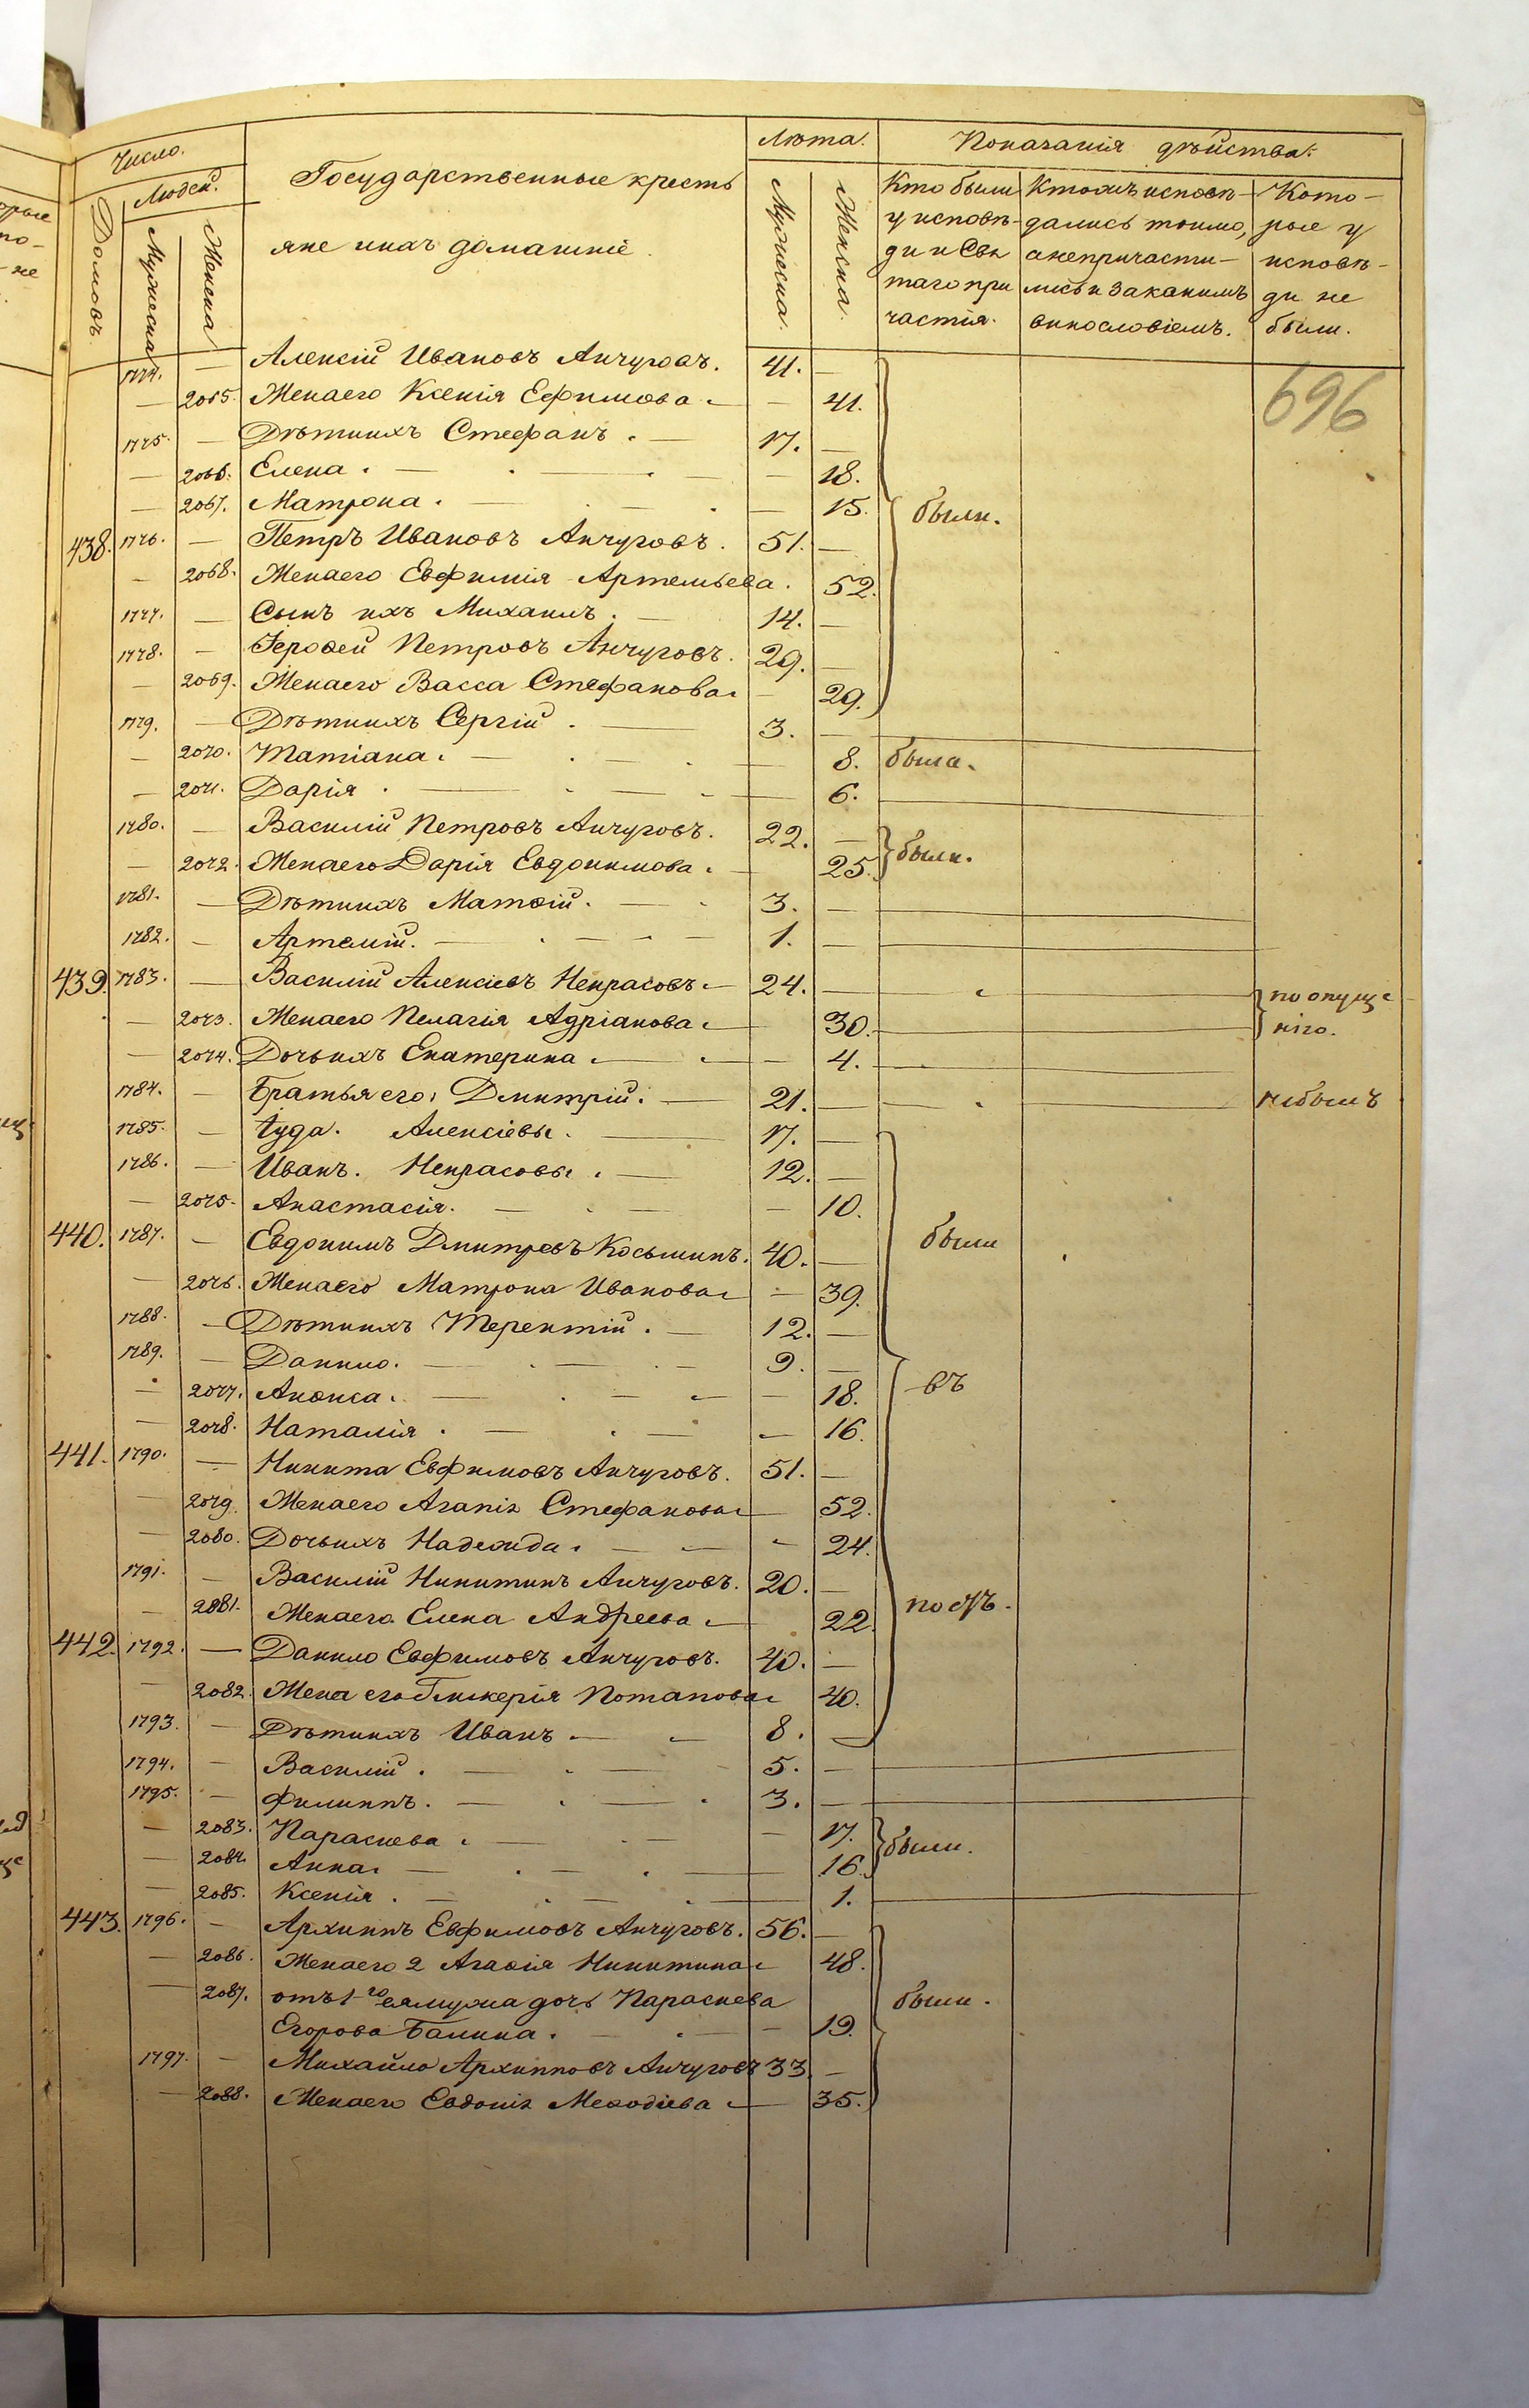 Число.
Людей.
Домовъ
Мужеска
Женска
Государственные кресть
яне ихъ домашніе.
Лѣта.
Мужеска.
Женска.
Показанія дѣйства.
Кто были
у исповѣ-
ди и Свя
таго при
частія.
Кто ихъ исповѣ-
дались токмо,
а непричасти-
лись и за какимъ
винословіемъ.
Кото-
рые у
исповѣ-
ди не
были.
696
1774. — Алексій Ивановъ Анчуговъ. 41. —
— 2065. Жена его Ксенія Ефимова — 41.
1775. — Дѣти ихъ Стефанъ. — 17. —
— 2066. Елена. — 18.
— 2067. Матрона. — 15. были.
438. 1776. — Петръ Ивановъ Анчуговъ. 51. —
— 2068. Жена его Евфимія Артемьева. 52.
1777. — Сынъ ихъ Михаилъ. — 14. —
1778. — Іерофей Петровъ Анчуговъ. 29. —
— 2069. Жена его Васса Стефанова — 29.
1779. — Дѣти ихъ Сергій. — 3. —
— 2070. Татіана. — 8. была.
— 2071. Дарія. — 6.
1780. — Василій Петровъ Анчуговъ. 22. —
— 2072. Жена его Дарія Евдокимова. — 25. были.
1781. — Дѣти ихъ Матѳій. — 3. —
1782. — Артемій. — 1. —
439. 1783. — Василій Алексіевъ Некрасовъ — 24. — по опуще
— 2073. Жена его Пелагія Адріанова — 30. — нію.
— 2074. Дочь ихъ Екатерина — 4. —
1784. — Братья его: Дмитрій. — 21. — небылъ
1785. — Іуда. Алексіевы. — 17. —
1786. — Иванъ. Некрасовы. — 12. —
— 2075. Анастасія. — 10.
440. 1787. — Евдокимъ Дмитревъ Косьминъ. 40. — были
— 2076. Жена его Матрона Иванова — 39.
1788. — Дѣти ихъ Терентій. — 12. —
1789. — Данило. — 9. —
— 2077. Анфиса. — 18. въ
— 2078. Наталія. — 16.
441. 1790. — Никита Евфимовъ Анчуговъ. 51. —
— 2079. Жена его Агапія Стефанова — 52.
— 2080. Дочь ихъ Надежда. — 24.
1791. — Василій Никитинъ Анчуговъ. 20. —
— 2081. Жена его Елена Андреева — 22. постъ.
442. 1792. — Данило Евфимовъ Анчуговъ. 40. —
— 2082. Жена его Гликерія Потапова 40.
1793. — Дѣти ихъ Иванъ — 8. —
1794. — Василій. — 5. —
1795. — Филиппъ. — 3. —
— 2083. Параскева. — 17. были.
— 2084. Анна. — 16.
— 2085. Ксенія. — 1.
443. 1796. — Архиппъ Евфимовъ Анчуговъ. 56. —
— 2086. Жена его 2 Агафія Никитина 48.
— 2087. отъ 1-го ея мужа дочь Параскева были.
Егорова Балина. — 19.
1797. — Михайло Архипповъ Анчуговъ 33 —
— 2088. Жена его Евдокія Меѳодіева — 35.